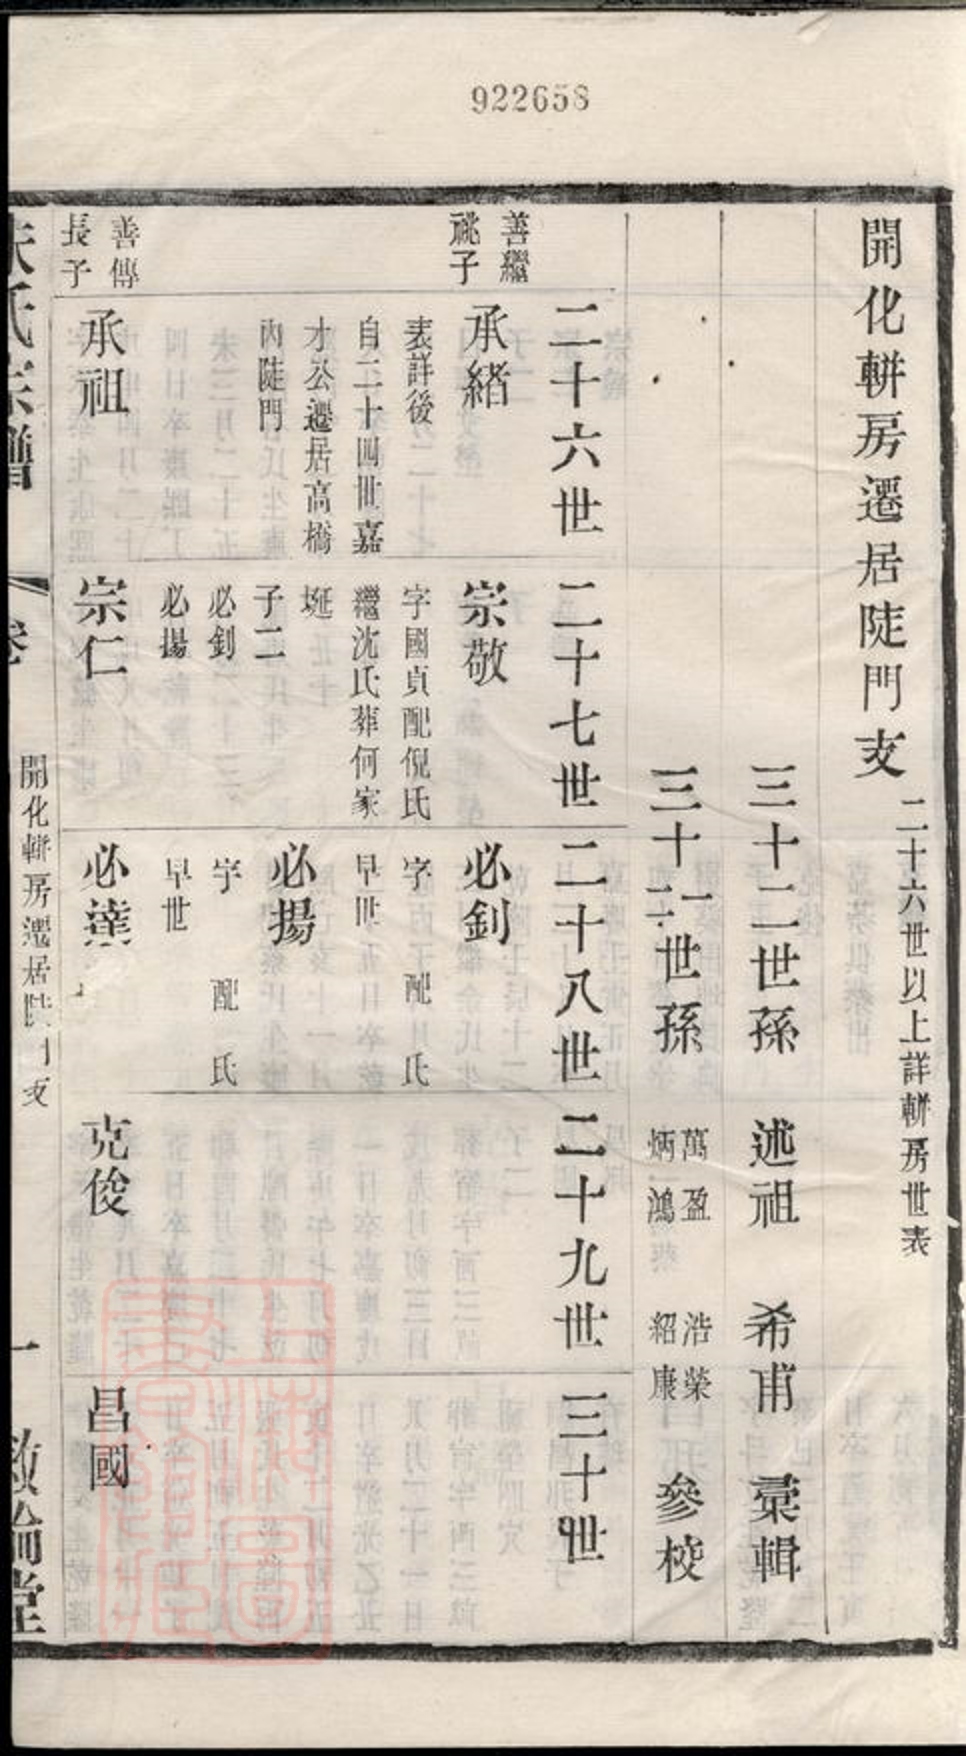 922658
開化輧房遷居陡門支 二十六世以上詳輧房世表
三十二世孫 述祖 希甫 彙輯
三十一二世孫 萬盈 炳鴻 浩榮 紹康 參校
二十六世
二十七世
二十八世
二十九世
三十世
善繼
祧子
承緒
表詳後
自二十四世嘉
才公遷居高橋
內陡門
宗敬
字國貞配倪氏
繼沈氏葬何家
埏
子二
必釗
必揚
必釗
字 配 氏
早世
必揚
字 配 氏
早世
善傳
長子
承祖
宗仁
必達
克俊
昌國
朱氏宗譜
卷
開化輧房遷居陡門支
一
敘倫堂